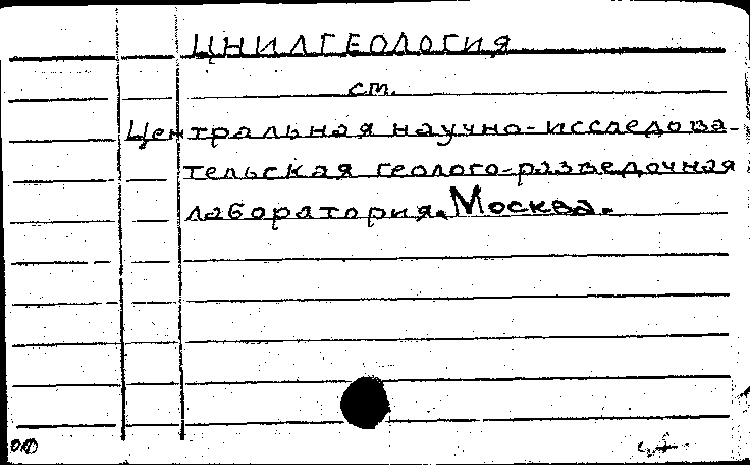 ЦНИЛГЕОЛОГИЯ
ст.
Центральная научно-исследова-
тельская геолого-разведочная
лаборатория. Москва.